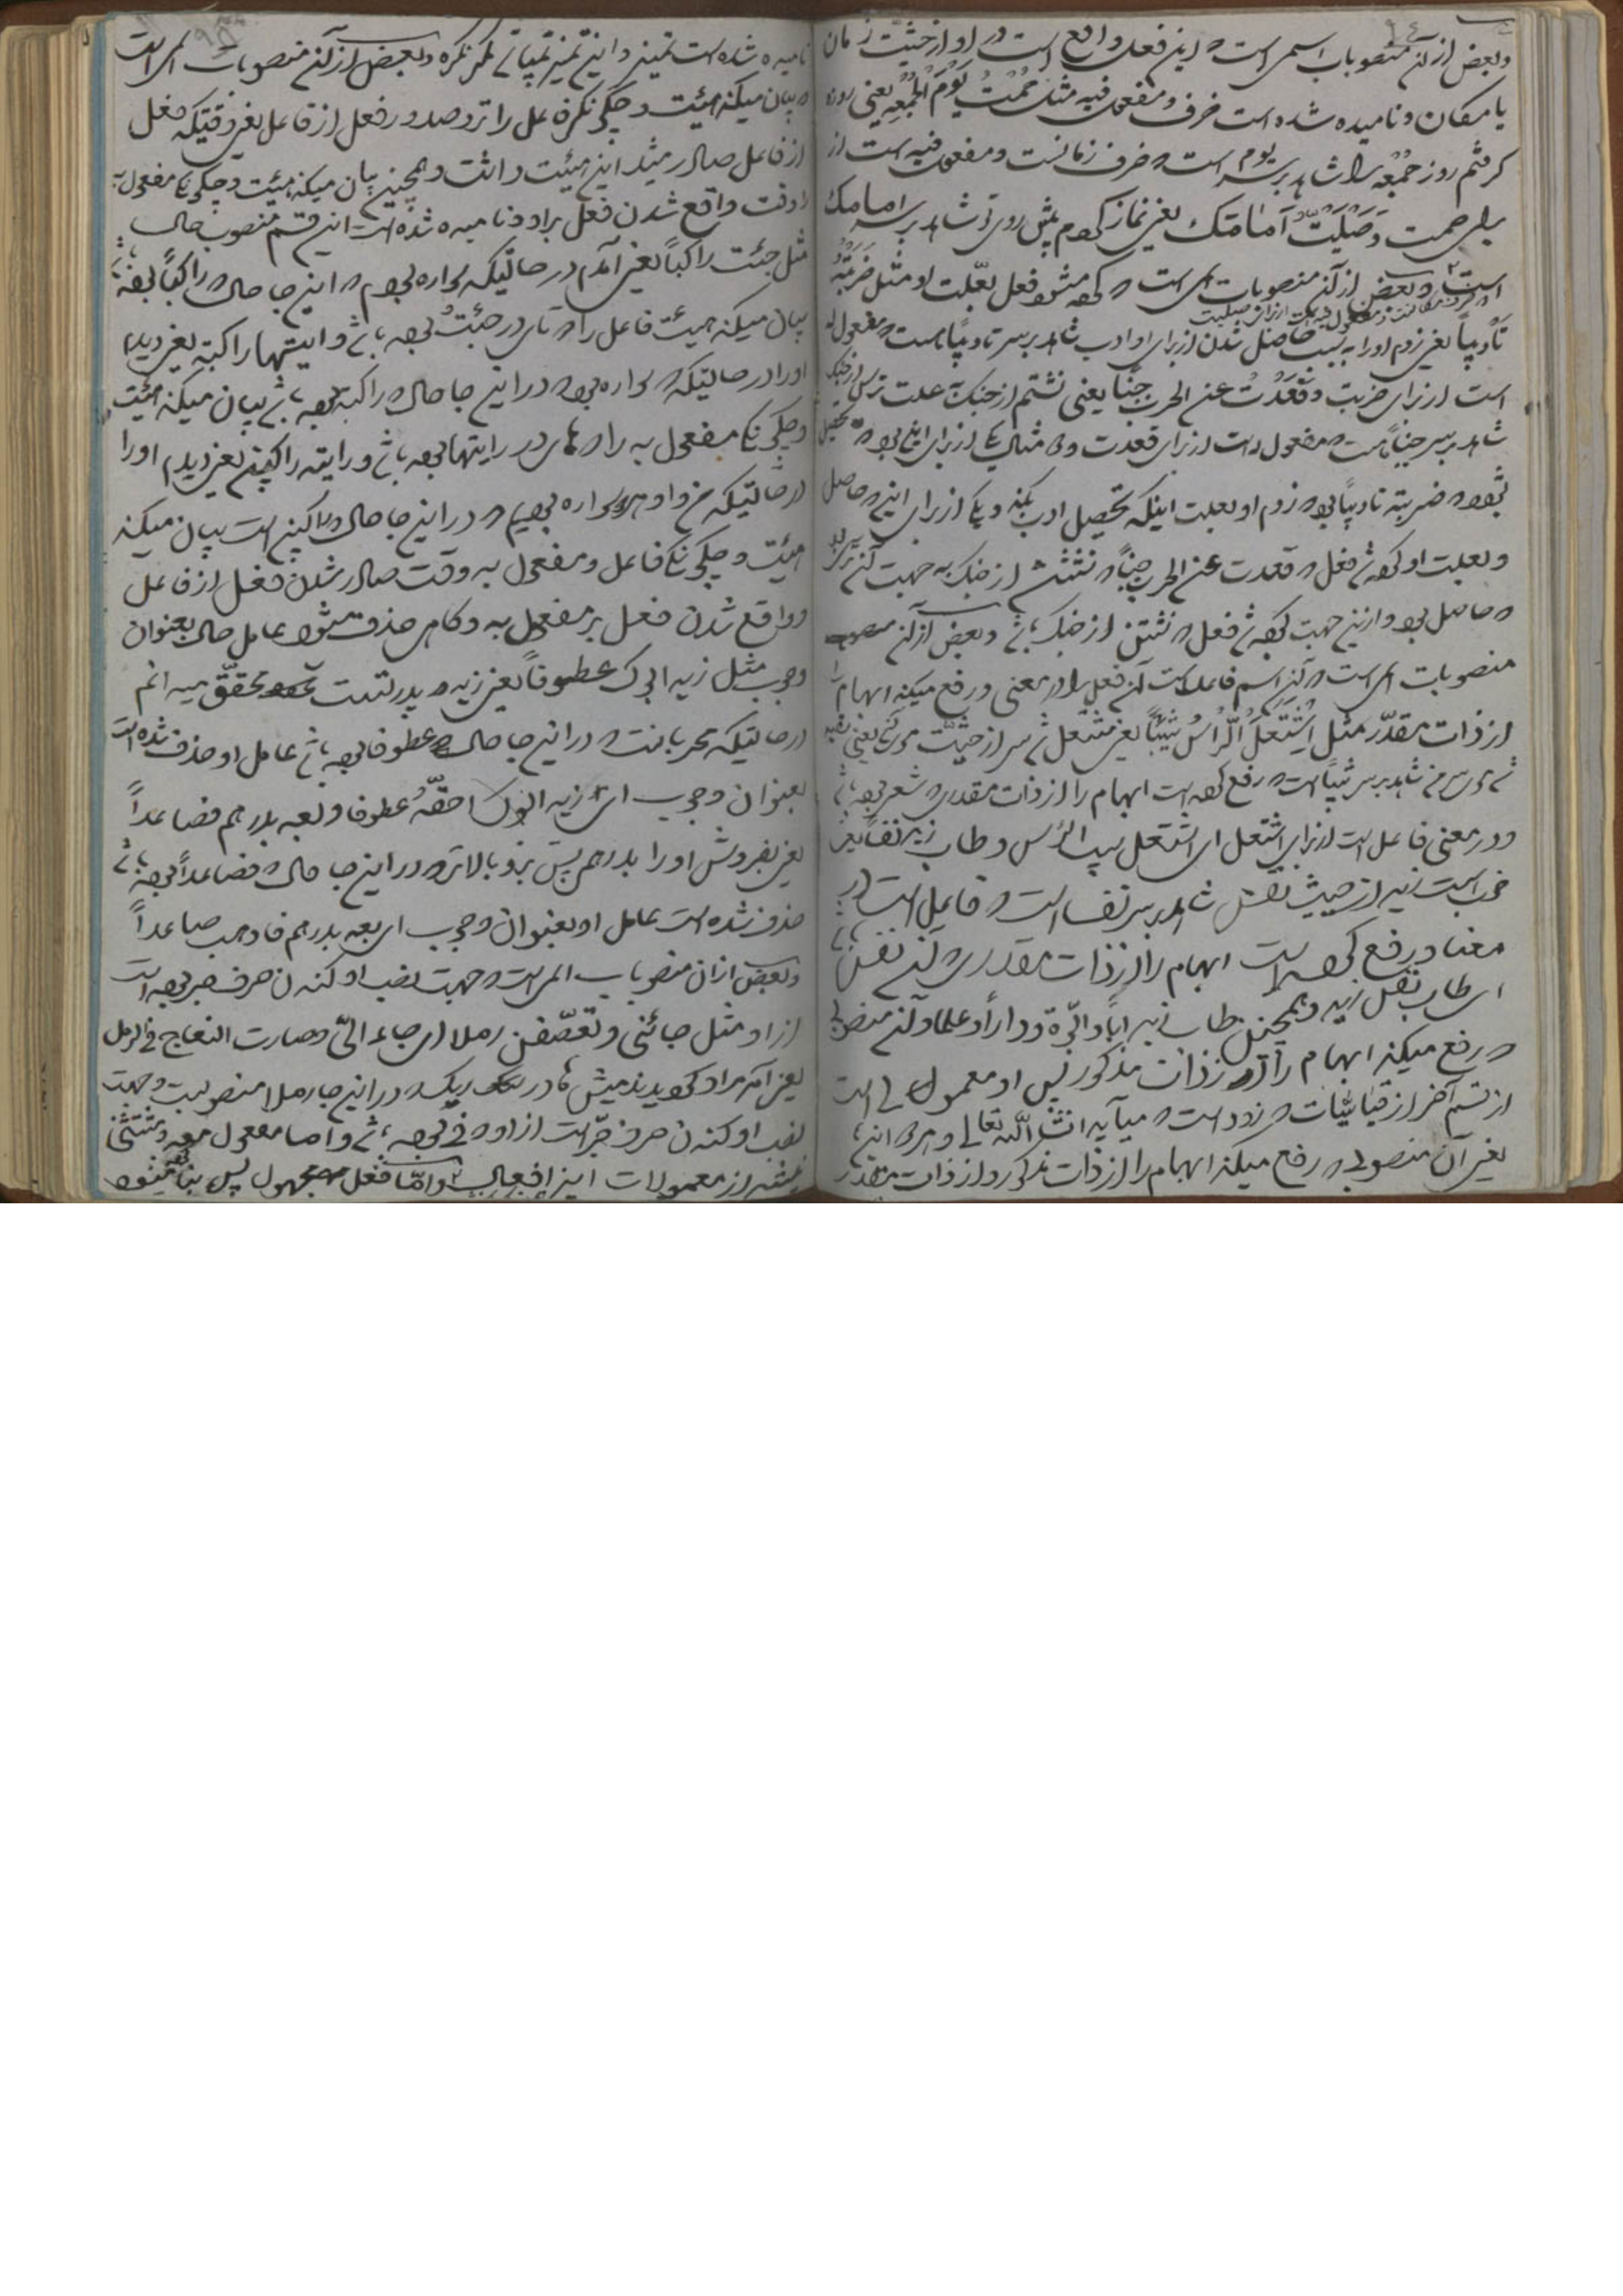 وبعض از آن منصوبات اسمی است که این فعل واقع است در او از حیثیت زمان
یا مکان و نامیده شده است ظرف و مفعول فیه مثل صُمْتُ یَوْمَ الْجُمُعَه یعنی روزه
گرفتم روز جمعه را شاهد بر سر یوم است که ظرف زمانست و مفعول فیه است از
برای صمت و صَلَّیْتُ اَمامَک یعنی نماز کردم پیش روی تو شاهد بر سر امامک
است وبعض از آن منصوبات اسمی است که کرده میشود فعل بعلت او مثل ضَرَبْتُهُ
تأدیباً یعنی زدم او را به سبب حاصل شدن از برای او ادب شاهد بر سر تأدیباً است که مفعول له
است از برای ضربت و قَعَدْتُ عن الحرب جبناً یعنی نشستم از جنک بعلت ترس از جنک
شاهد بر سر جبناً است که مفعول له است از برای قعدت
بوده ضربته تادیباً بود که زدم او بعلت اینکه تحصیل ادب بکند و یکی از برای این که حاصل
وبعلت او کرده شد فعل که قعدت عن الحرب جبناً که نشستن از جنک به جهت آن ترس
که حاصل بود و از این جهت کرده شد فعل که نشستن از جنک باشد وبعض از آن
منصوبات اسمی است که آن اسم فاعل است آن فعل را در معنی و رفع میکند ابهام را
از ذات مقدّر مثل اِشْتَعَلَ الرَّأسُ شَیْباً یعنی مشتعل شد سر از حیثیت موی یعنی سفید
شد موی سر من شاهد بر سر شیباً است که رفع کرده است ابهام را از ذات مقدر که شعر بوده باشد
و در معنی فاعل است از برای اشتعل ای اشتعل شیب الرأس و طاب زید نفساً یعنی
خوب است زید از حیث نفس شاهد بر سر نفسا است که فاعل است در
معنا و رفع کرده است ابهام را از ذات مقدر که آن نفس باشد
ای طاب نفس زید و همچنین طاب زید اباً و ابوّة و داراً و علماً و آن منصوبی
که رفع میکند ابهام را از ذات مذکور پس او معمول است
از قسم آخر از قیاسیّات که زود است که میآید انشاء اللّه تعالی و هر دو این
یعنی آن منصوبی که رفع میکند ابهام را از ذات مذکور و از ذات مقدر
نامیده شده است تمیز و این تمیز نمیباشد مگر نکره وبعض از آن منصوبات اسمی است
که بیان میکند هیئت و چگونگی فاعل را نزد صدور فعل از فاعل یعنی وقتیکه فعل
از فاعل صادر میشد این هیئت داشت و همچنین بیان میکند هیئت و چگونگی مفعول به
را وقت واقع شدن فعل بر او و نامیده شده است این قسم منصوب حال
مثل جئت راکباً یعنی آمدم در حالتیکه سواره بودم که این جا حال که راکباً بوده باشد
بیان میکند هیئت فاعل را که تای در جئتُ بوده باشد و رایتها راکبة یعنی دیدم
او را در حالتیکه سواره بود در این جا حال که راکبة بوده باشد بیان میکند هیئت
و چگونگی مفعول به را که های در رایتها بوده باشد و رایته راکبین یعنی دیدم او را
در حالتیکه من و او سواره بودیم در این جا حال که راکبین است بیان میکند
هیئت و چگونگی فاعل و مفعول به وقت صادر شدن فعل از فاعل
و واقع شدن فعل بر مفعول به و کاهی حذف میشود عامل حال بعنوان
وجوب مثل زید ابوک عطوفاً یعنی زید پدر تست محقّق میدانم
در حالتیکه مهربانست در این جا حال که عطوفا بوده باشد عامل او حذف شده است
بعنوان وجوب ای زید ابوک احقّهُ عطوفا و بعه بدرهم فصاعداً
یعنی بفروش او را بدرهمی پس برو بالاتر در این جا حال که فصاعداً بوده باشد
حذف شده است عامل او بعنوان وجوب ای بعه بدرهم فاذهب صاعداً
وبعض از آن منصوبات اسمی است که جهت نصب او کندن حرف جر بوده است
از او مثل جائنی و تعسّفن رملا ای جاء الیّ وصارت النعاج فی الرمل
یعنی آمد مرا و گردیدند میش ها در ریک در این جا رملا منصوبست و جهت
نصب او کندن حرف جرّ است از او که فی بوده باشد و اما مفعول معه و مستثنی
نیستند از معمولات این افعال و امّا فعل مجهول پس بنا میشود